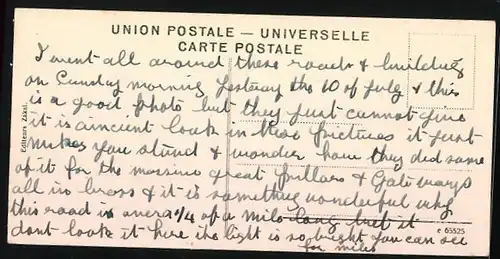 UNION POSTALE — UNIVERSELLE
CARTE POSTALE
I went all around these roads & building
on Sunday morning yestuay the 10 of July & this
is a good photo but they just cannot give
it is aincient look in these pictures it just
makes you stand & wonder how they did some
of it for the massive great pillars & Gate ways
all in brass & it is something wonderful why
this road is over a ¼ of a mile long but it
dont look it here the light is so bright you can see
for miles
Editeurs Zákai.
e 65525